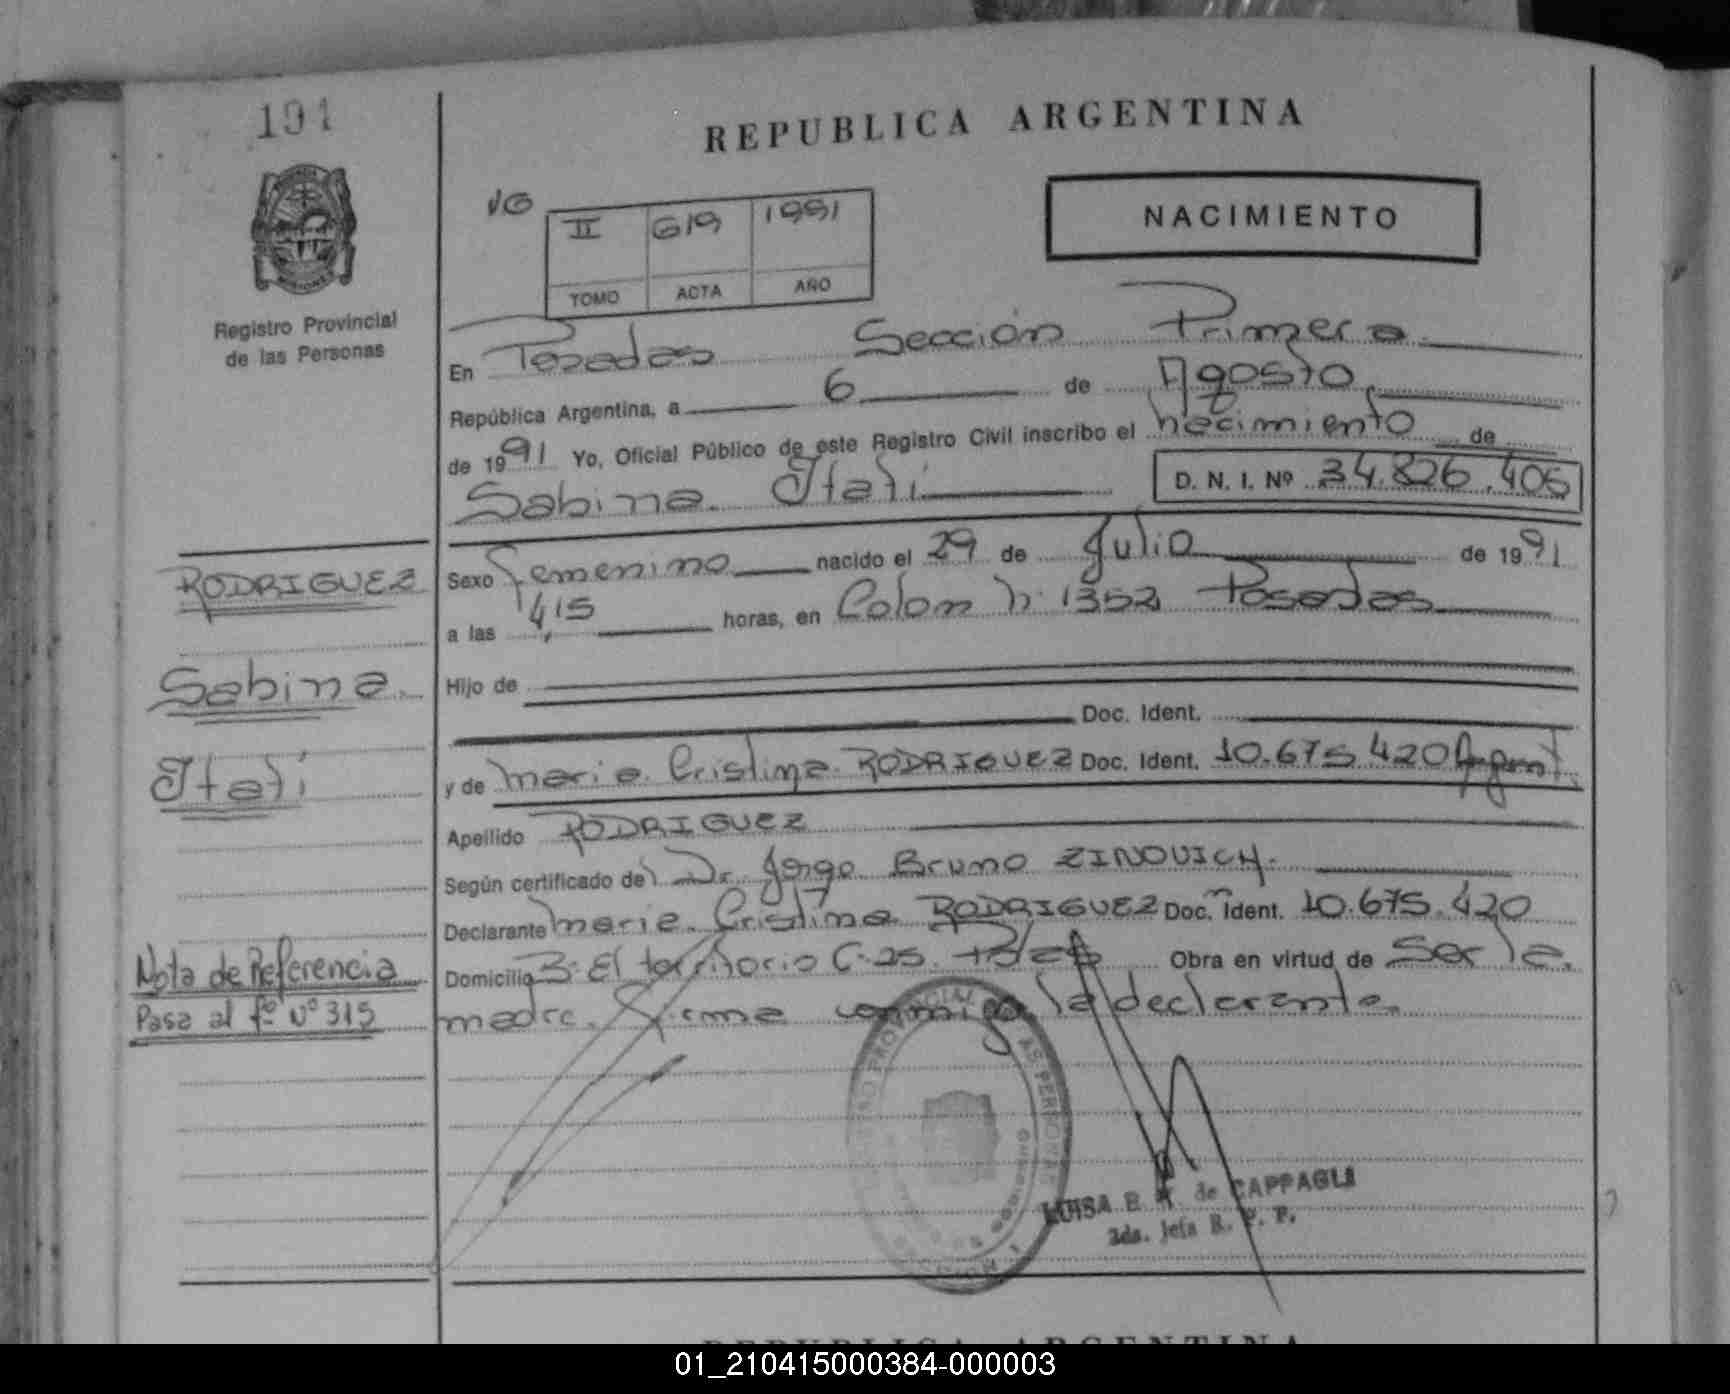 191
REPUBLICA ARGENTINA
NACIMIENTO
II 619 1991
TOMO ACTA AÑO
Registro Provincial
de las Personas
En Posadas Sección Primera
República Argentina, a 6 de Agosto
de 1991 Yo, Oficial Público de este Registro Civil inscribo el nacimiento de
Sabina Itatí D. N. I. Nº 34.826.406
RODRIGUEZ
Sabina
Itatí
Sexo femenino nacido el 29 de Julio de 1991
a las 4,15 horas, en Colon n: 1352 Posadas
Hijo de
Doc. Ident.
y de Maria Cristina RODRIGUEZ Doc. Ident. 10.675.420 Argent.
Apellido RODRIGUEZ
Según certificado del Dr. Jorge Bruno ZINOVICH.
Declarante Maria Cristina RODRIGUEZ Doc. Ident. 10.675.420
Domicilio B: El territorio C-25. Obra en virtud de Ser la
madre. Firma conmigo la declarante.
Nota de Referencia
Pasa al fº Nº 315
LUISA B. de CAPPAGLI
2da. Jefa R. P. P.
REPUBLICA ARGENTINA
01_210415000384-000003